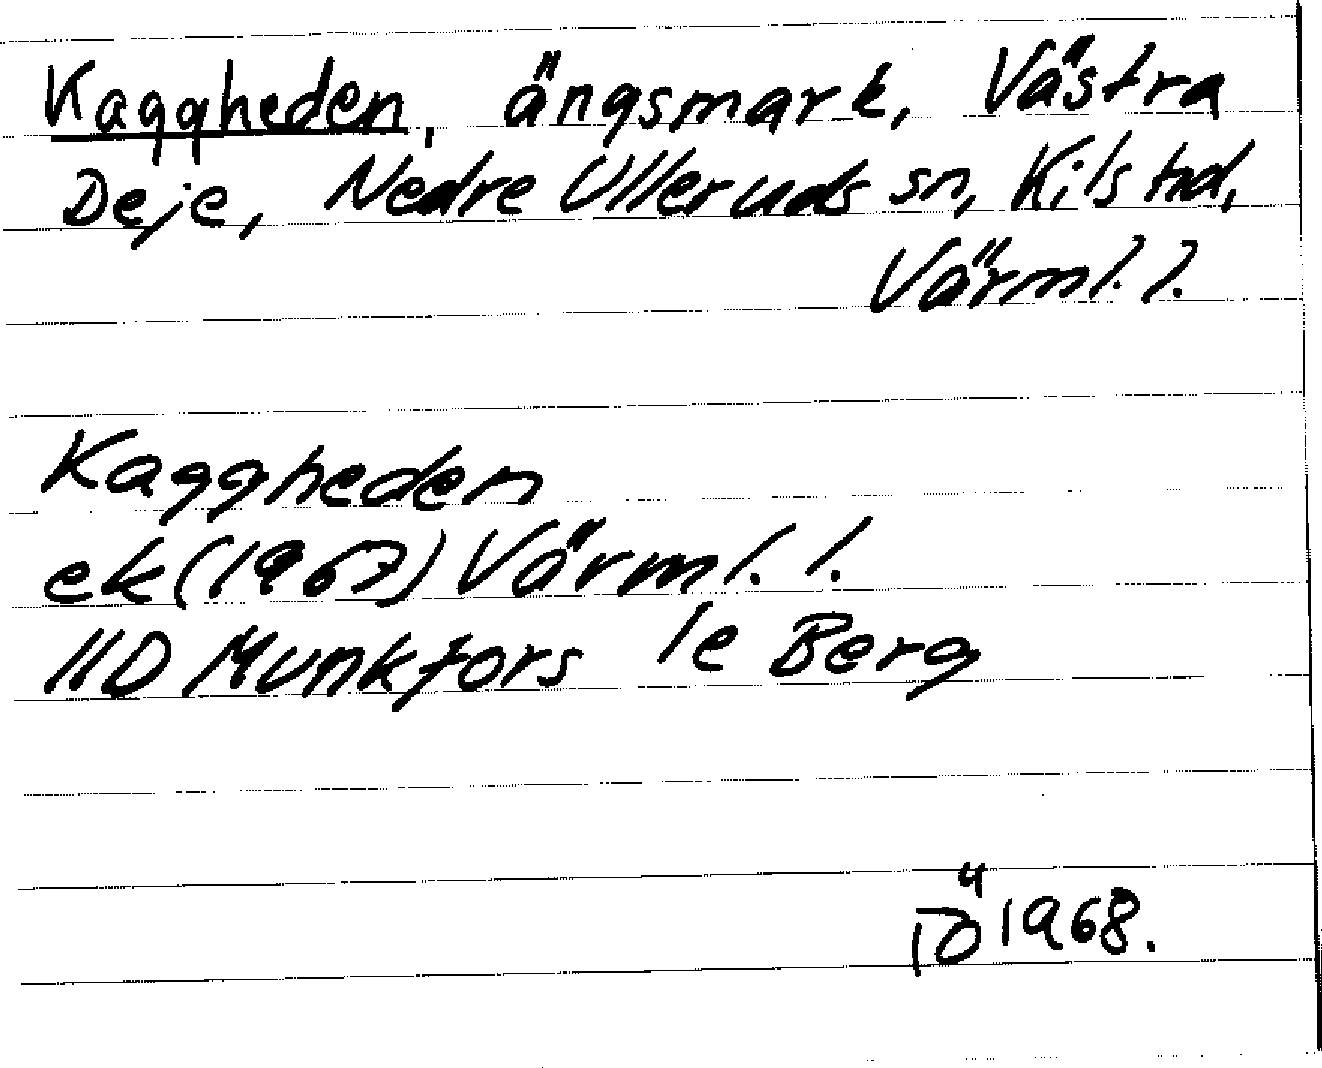 Kaggheden, ängsmark, Västra
Deje, Nedre Ulleruds sn, Kils hd,
Värml. l.
Kaggheden
ek (1967) Värml. l.
11D Munkfors 1e Berg
1968.